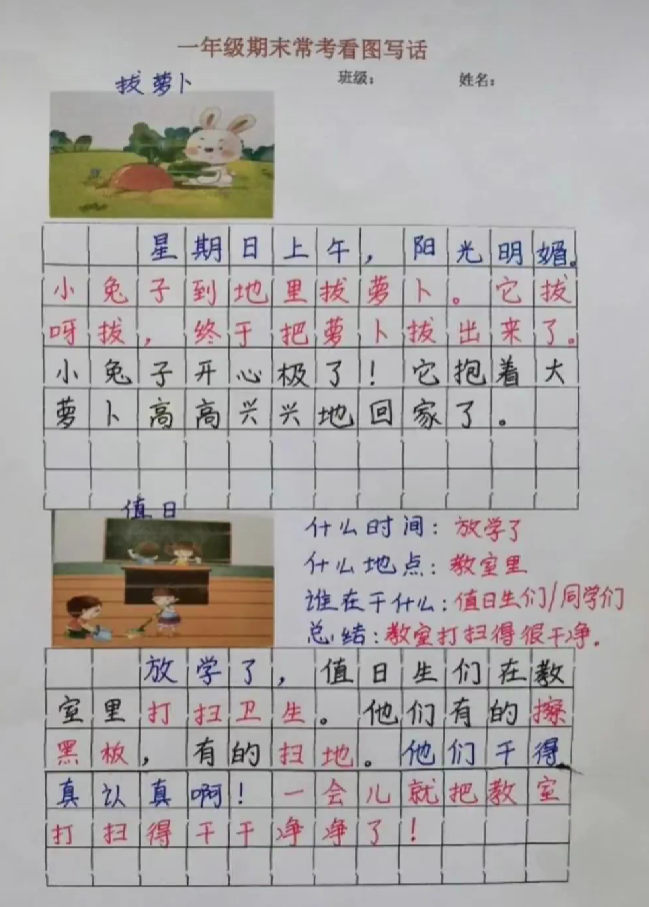 一年级期末常考看图写话
班级： 姓名：
拔萝卜
星期日上午，阳光明媚。
小兔子到地里拔萝卜。它拔
呀拔，终于把萝卜拔出来了。
小兔子开心极了！它抱着大
萝卜高高兴兴地回家了。
值日
什么时间：放学了
什么地点：教室里
谁在干什么：值日生们/同学们
总结：教室打扫得很干净.
放学了，值日生们在教
室里打扫卫生。他们有的擦
黑板，有的扫地。他们干得
真认真啊！一会儿就把教室
打扫得干干净净了！